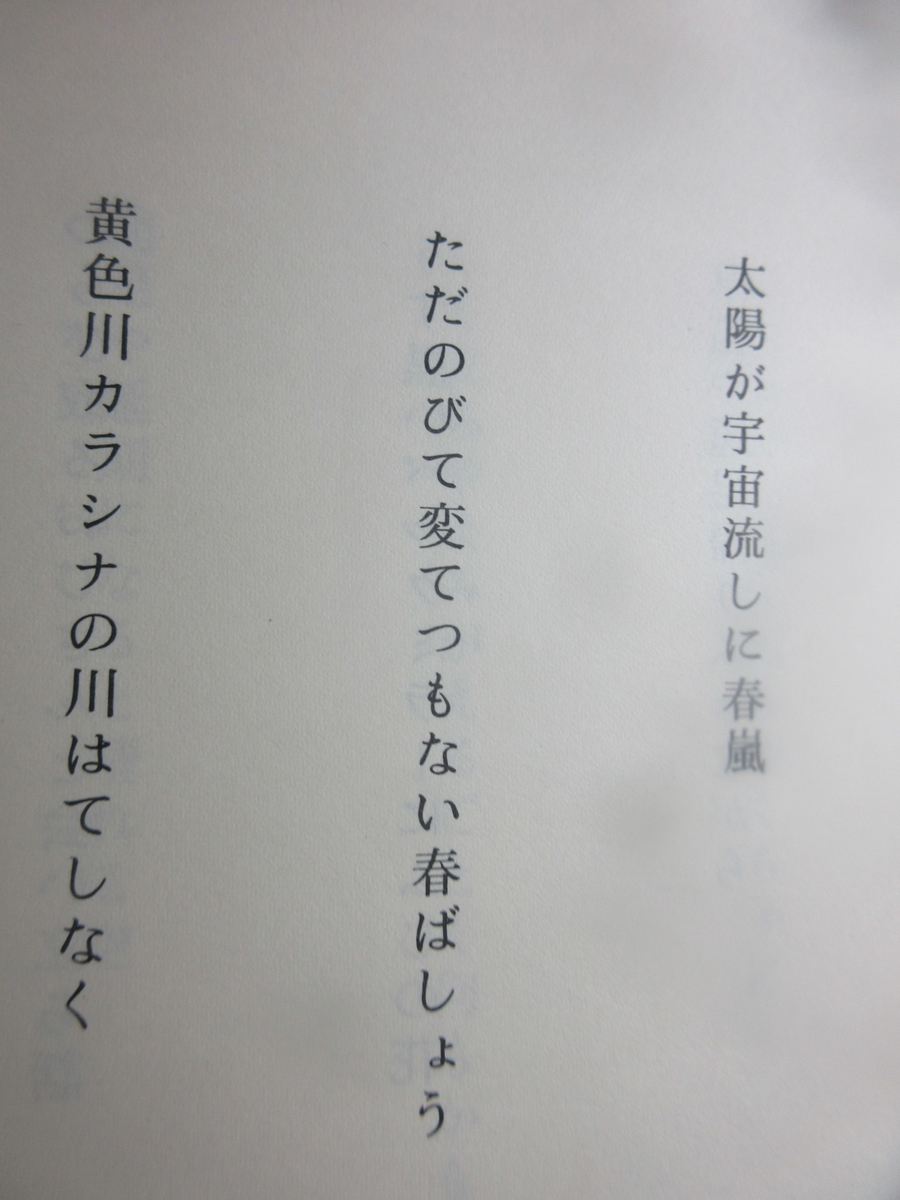 太陽が宇宙流しに春嵐
ただのびて変てつもない春ばしょう
黄色川カラシナの川はてしなく